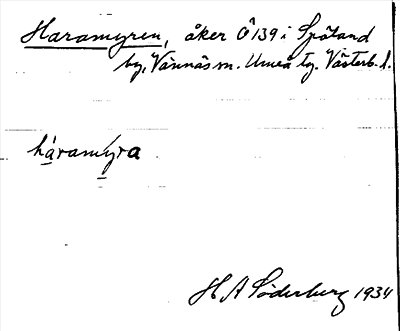 Haramyren, åker Ö 139 i Spöland
by, Vännäs sn. Umeå tg. Västerb. l.
håramýra
H A Söderberg 1934